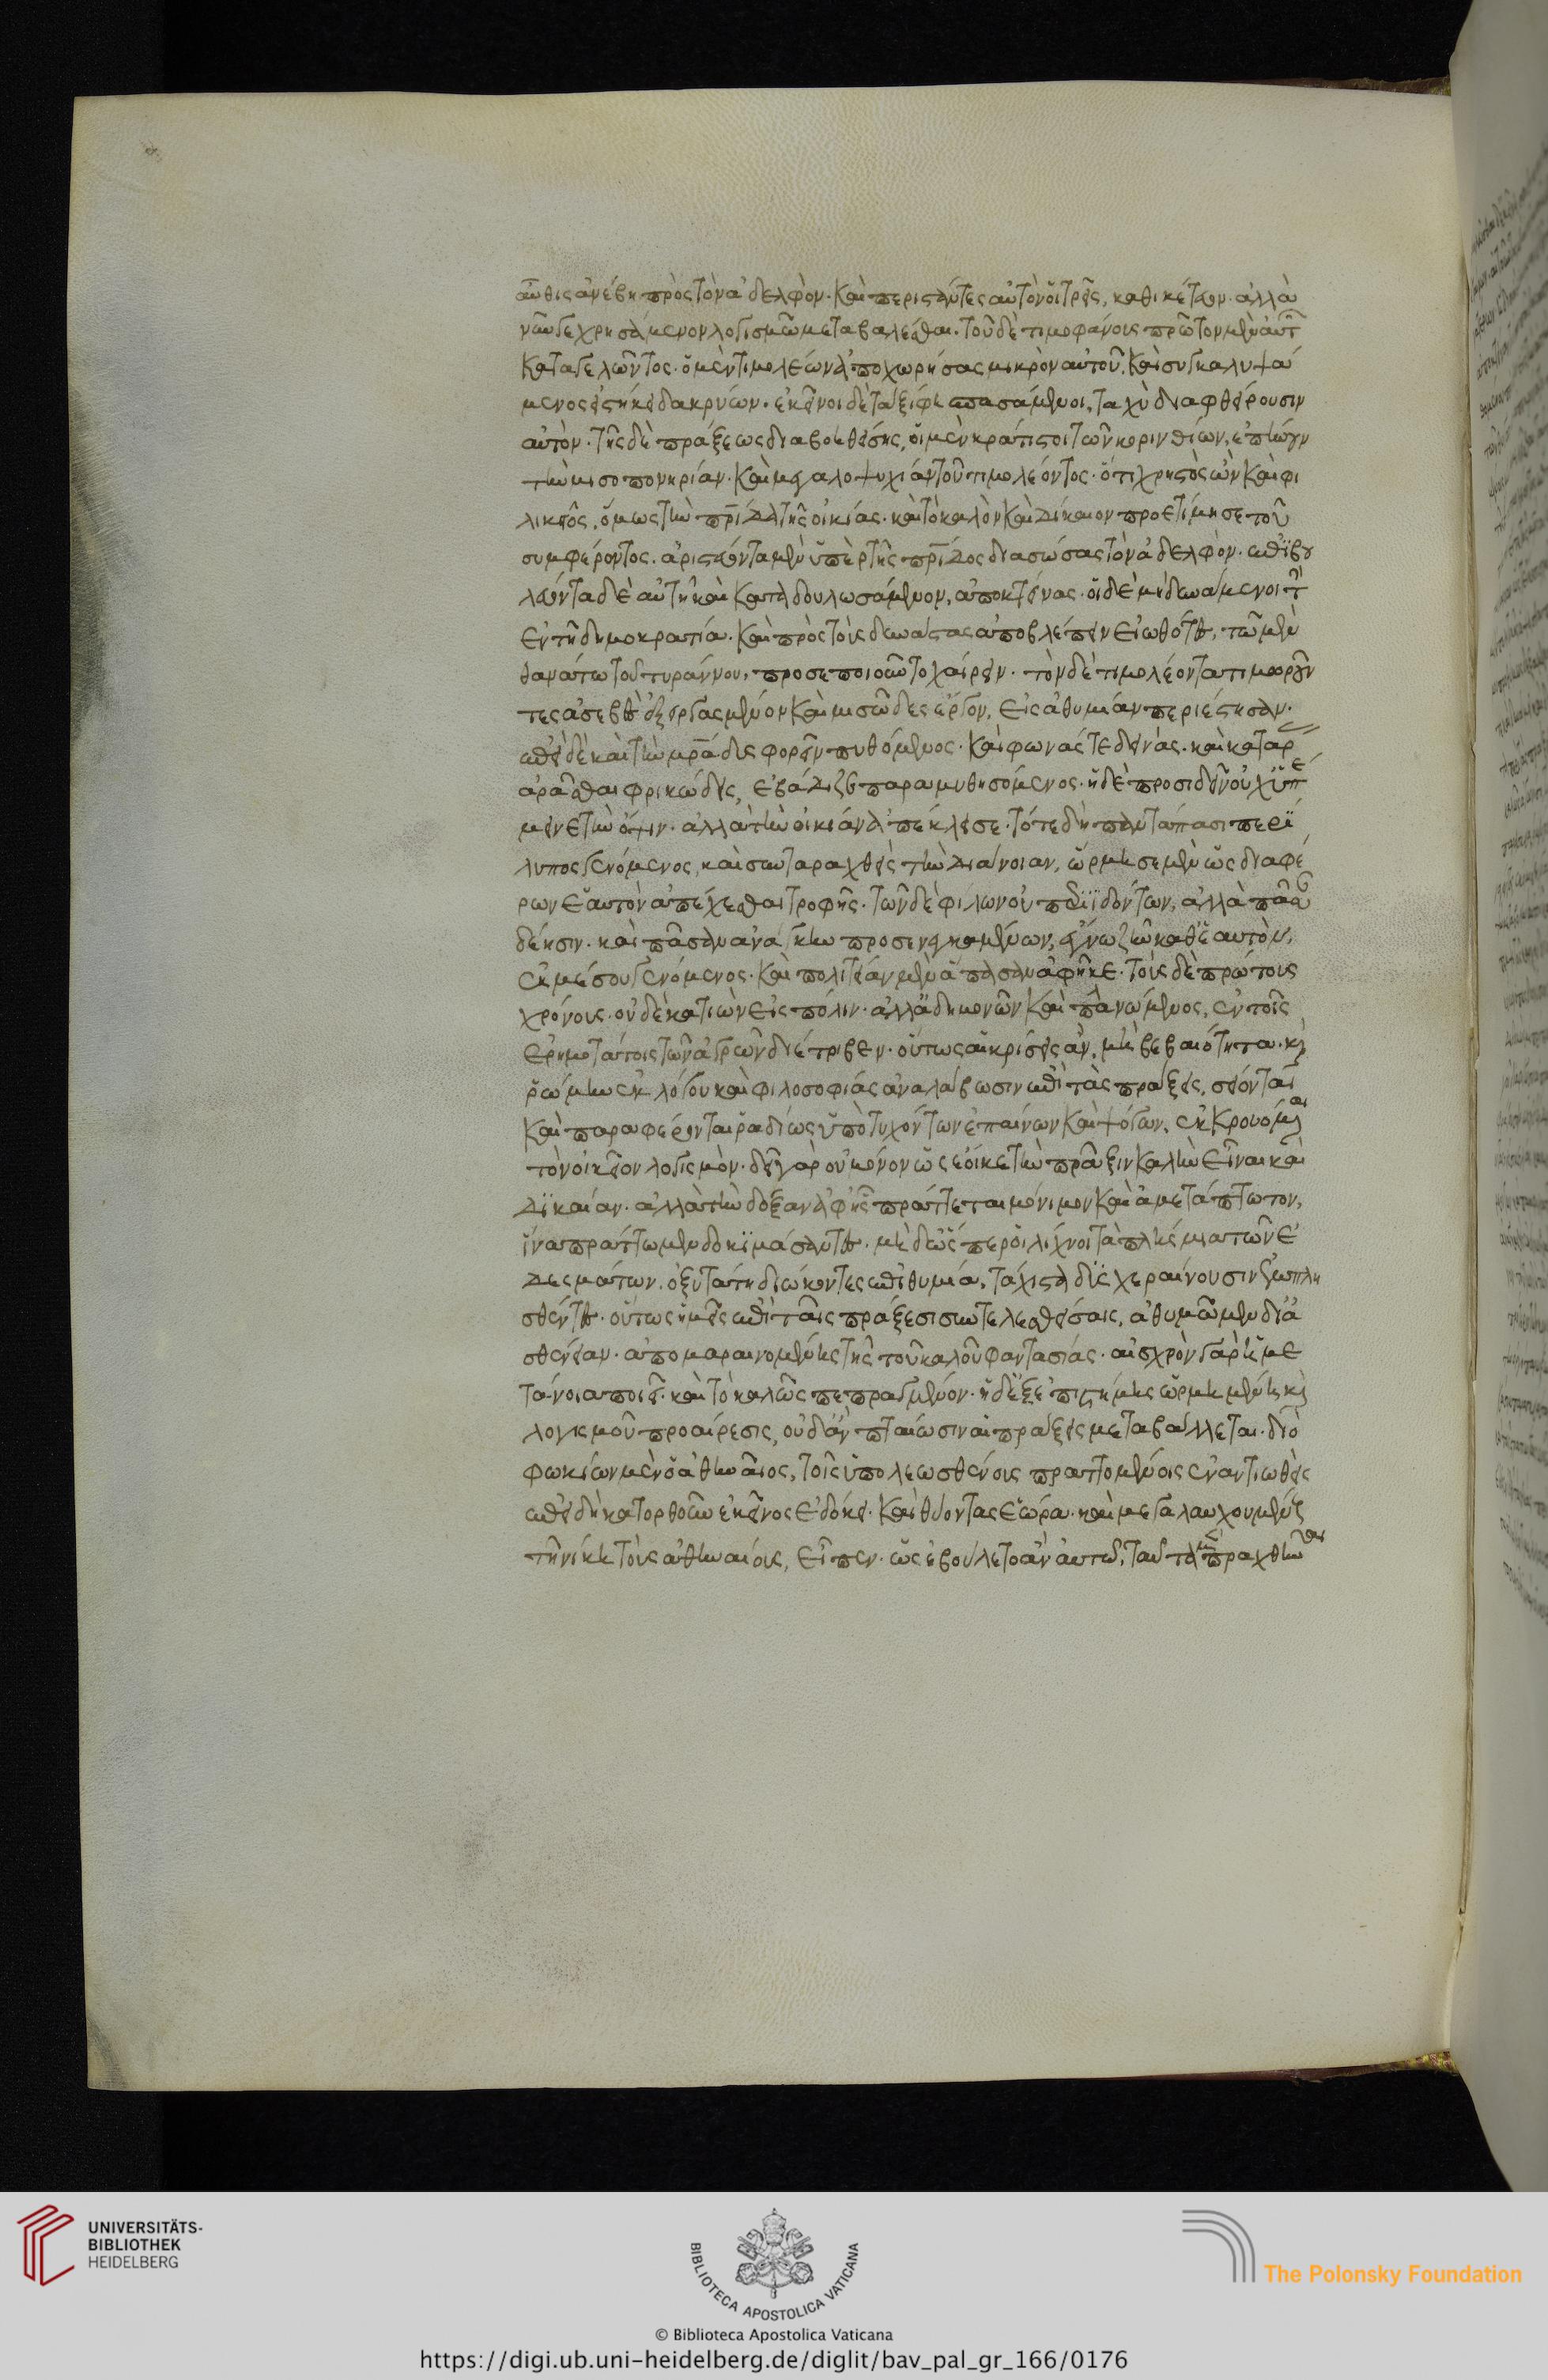 αὖθις ἀνέβη πρὸς τὸν ἀδελφὸν· καὶ περιστάντες αὐτὸν οἱ τρεῖς, καθικέτευον· ἀλλὰ
νῦν γε χρησάμενον λογισμῶ μεταβαλέσθαι. τοῦ δὲ τιμοφάνους πρῶτον μὲν αὐτ
καταγελῶντος· ὁ μὲν τιμολέων ἀποχωρήσας μικρὸν αὐτοῦ, καὶ συγκαλυψά
μενος εἱστήκει δακρύων· ἐκεῖνοι δὲ τὰ ξίφη σπασάμενοι, ταχὺ διαφθείρουσιν
αὐτὸν· τῆς δὲ πράξεως διαβοηθείσης, οἱ μὲν κράτιστοι τῶν κορινθίων, ἐπήνουν
τὴν μισοπονηρίαν· καὶ μεγαλοψυχίαν τοῦ τιμολέοντος· ὅτι χρηστὸς ὢν καὶ φι
λικεῖος, ὅμως τὴν πρίδα τῆς οἰκίας· καὶ τὸ καλὸν καὶ δίκαιον προετίμησε τοῦ
συμφέροντος. ἀριστεύοντα μὲν ὑπὲρ τῆς πρίδος διασώσας τὸν ἀδελφὸν· ἐπιβου
λεύοντα δὲ αὐτῆ καὶ καταδουλωσάμενον, ἀποκτείνας· οἱ δὲ μὴ δυνάμενοι τ
ἐν τῆ δημοκρατία· καὶ πρὸς τοὺς δυνάστας ἀποβλέπειν εἰωθότες, τῶ μὲν
θανάτω τοῦ τυράννου, προσεποιοῦντο χαίρειν· τὸν δὲ τιμολέοντα τιμωροῦν
τες ἀσεβὲς ἐξειργασμένον καὶ μισῶδες ἔργον, εἰς ἀθυμίαν περιέστησαν·
ἐπεὶ δὲ καὶ τὴν μρᾶ δυσφορεῖν πυθόμενος· καὶ φωνάς τε δεινάς· καὶ καταρ
ἀρᾶσθαι φρικώδεις, ἐβάδιζε παραμυθησόμενος· ἡ δὲ προσιδεῖν οὐχ ὑπέ
μεινε τὴν ὄψιν· ἀλλὰ τὴν οἰκίαν ἀπέκλεισε· τότε δὴ παντάπασι περί
λυπος γενόμενος, καὶ συνταραχθεὶς τὴν διάνοιαν, ὥρμησε μὲν ὡς διαφέ
ρων ἑαυτὸν ἀπέχεσθαι τροφῆς· τῶν δὲ φίλων οὐ περιϊδόντων, ἀλλὰ πᾶσαν
δέησιν· καὶ πᾶσαν ἀνάγκην προσενεγκαμένων, ἔγνω ζῆν καθ' ἑαυτὸν,
ἐκ μέσου γενόμενος· καὶ πολιτείαν μὲν ἅπασαν ἀφῆκε· τοὺς δὲ πρώτους
χρόνους· οὐδὲ κατιὼν εἰς πόλιν· ἀλλ' ἀδημονῶν καὶ πλανώμενος, ἐν τοῖς
ἐρημοτάτοις τῶν ἀγρῶν διέτριβεν· οὕτως αἱ κρίσεις ἂν, μὴ βεβαιότητα· καὶ
ῥώμην ἐκ λόγου καὶ φιλοσοφίας ἀναλάβωσιν ἐπὶ τὰς πράξεις, σείονται
καὶ παραφέρονται ῥαδίως ὑπὸ τυχόντων ἐπαίνων καὶ ψόγων, ἐκκρουόμεναι
τὸν οἰκεῖον λογισμὸν· δεῖ γὰρ οὐ μόνον ὡς ἔοικε τὴν πρᾶξιν καλὴν εἶναι καὶ
δικαίαν· ἀλλὰ τὴν δόξαν ἀφ' ἧς πράττεται μόνιμον καὶ ἀμετάπτωτον,
ἵνα πράττωμεν δοκιμάσαντες· μὴ δ' ὥσπερ οἱ λίχνοι τὰ πλήσμια τῶν ἐ
δεσμάτων. ὀξυτάτη διώκοντες ἐπιθυμία, τάχιστα δυσχεραίνουσιν ἐμπλη
σθέντες· οὕτως ἡμεῖς ἐπὶ ταῖς πράξεσι συντελεσθείσαις, ἀθυμῶμεν δι' ἀ
σθένειαν· ἀπομαραινομένης τῆς τοῦ καλοῦ φαντασίας· αἰσχρὸν γὰρ ἡ με
τάνοια ποιεῖ· καὶ τὸ καλῶς πεπραγμένον· ἡ δὲ ἐξ ἐπιστήμης ὡρμημένη καὶ
λογισμοῦ προαίρεσις, οὐδ' ἂν πταίωσιν αἱ πράξεις μεταβάλλεται· διὸ
φωκίων μὲν ὁ ἀθηναῖος, τοῖς ὑπὸ λεωσθένους πραττομένοις ἐναντιωθεὶς
ἐπεὶ δὴ κατορθοῦν ἐκεῖνος ἐδόκει· καὶ θύοντας ἑώρα· καὶ μεγαλαυχουμένους
τῆ νίκη τοὺς ἀθηναίους, εἶπεν· ὡς ἐβούλετο ἂν αὐτῶ, ταῦτα μὲν πραχθῆναι
UNIVERSITÄTS-
BIBLIOTHEK
HEIDELBERG
BIBLIOTECA APOSTOLICA VATICANA
The Polonsky Foundation
© Biblioteca Apostolica Vaticana
https://digi.ub.uni-heidelberg.de/diglit/bav_pal_gr_166/0176